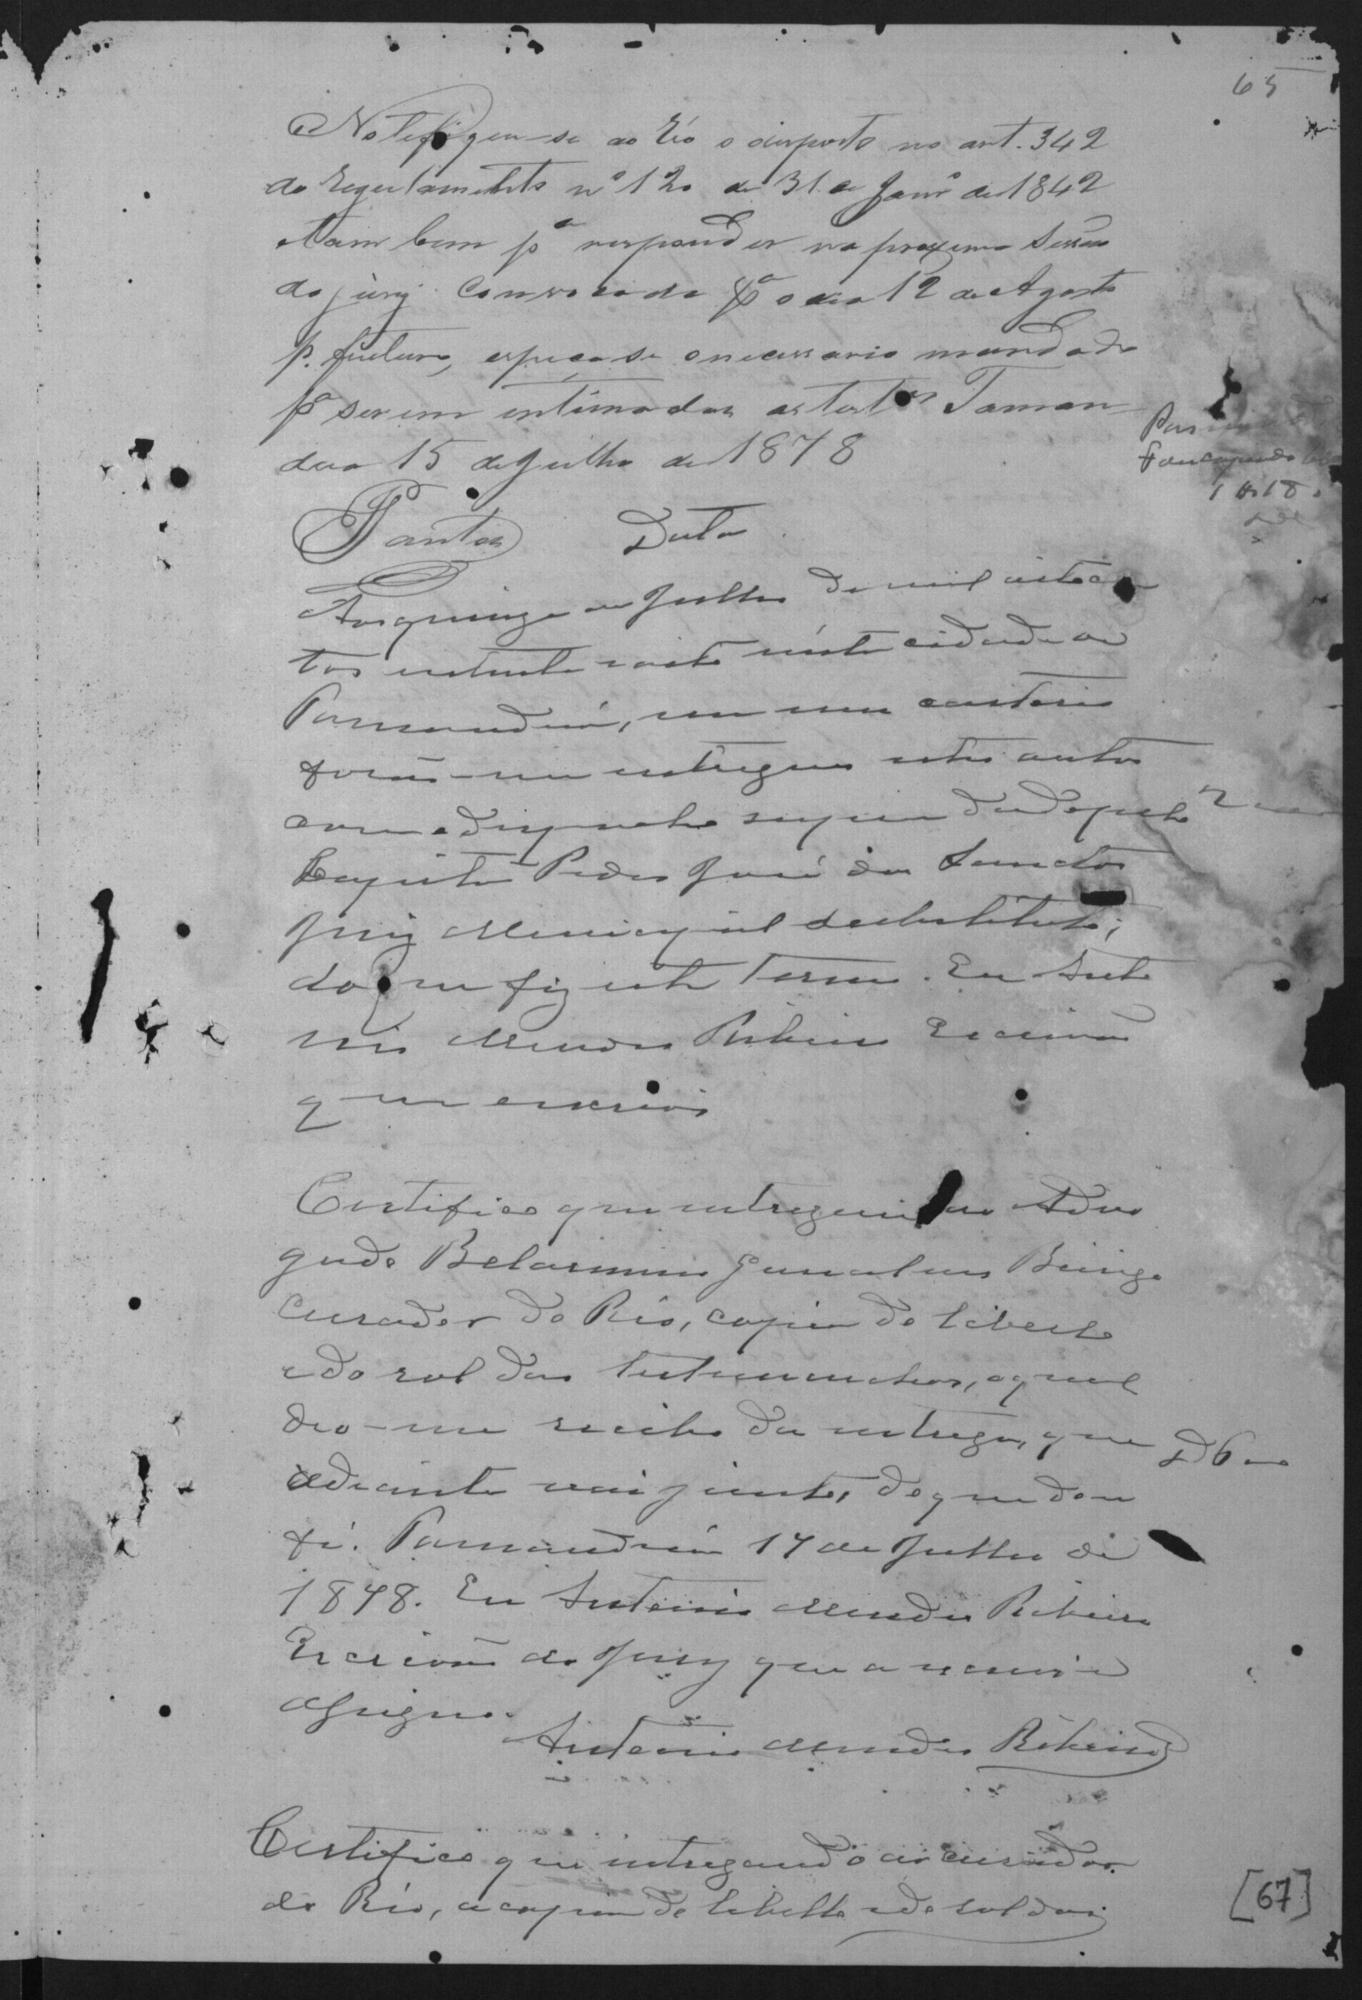 65
Notifique-se ao Réo o disposto no art. 342
do Regulamento nº 120 de 31 de Janrº de 1842
e tambem pª responder na proxima sessão
do jury convocada pª o dia 12 de Agosto
p. futuro, expeça-se o necessario mandado
pª serem intimadas as testas Taman
dua 15 de Julho de 1878
Santos Data
Aos quinze de Julho de mil oitocen
tos setenta e oito nésta cidade de
Tamanduá, em meu cartorio
forão-me entregues estes autos
com o despacho supra do
Capitão Pedro José dos Santos
Juiz Municipal substituto;
do que fiz este termo. Eu Anto
nio Mendes Ribeiro Escrivão
que escrevi
Certifico que entreguei ao Advo
gado Belarmino Gonçalves
Curador do Réo, copia do libello
e do rol das testemunhas, o qual
deo-me recibo da entrega, que
adiante vai junto, de que dou
fé. Tamanduá 17 de Julho de
1878. Eu Antonio Mendes Ribeiro
Escrivão do Jury que a escrevi e
assigno.
Antonio Mendes Ribeiro
Certifico que entregando ao curador
do Réo, a copia do libello e do rol das
[67]